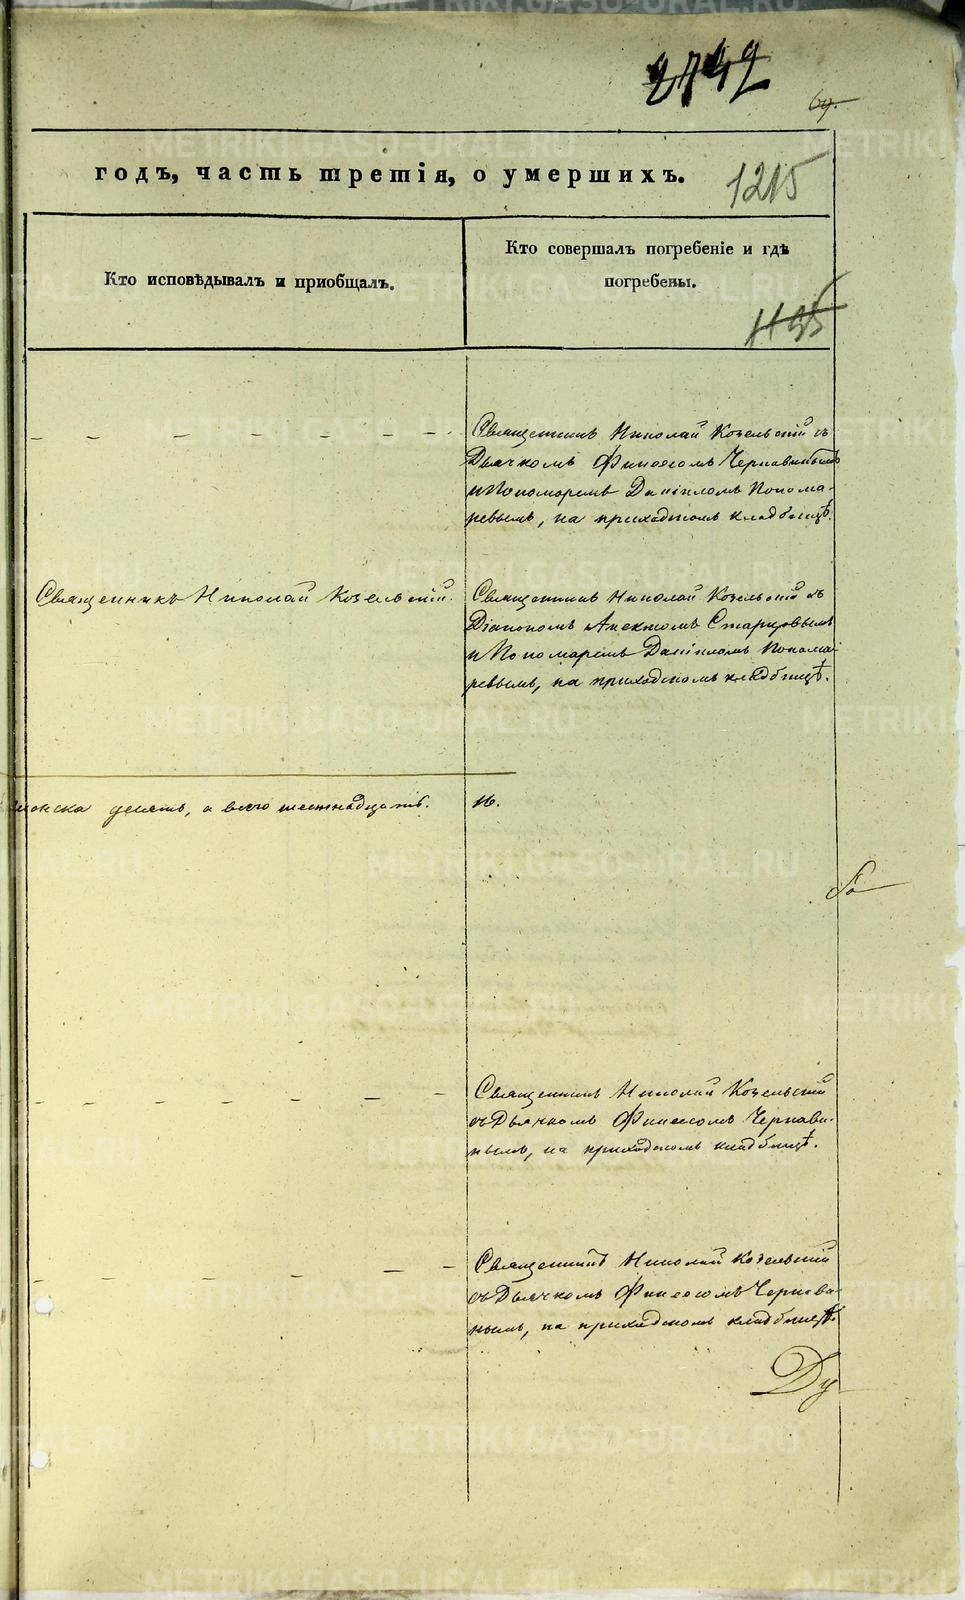 2742
69.
годъ, часть третія, о умершихъ.
1215
Кто исповѣдывалъ и пріобщалъ.
Кто совершалъ погребеніе и гдѣ
погребены.
1195
Священникъ Николай Козельскій съ
Дьячкомъ Финеесомъ Чернавинымъ
и Пономаремъ Даніиломъ Понома-
ревымъ, на приходскомъ кладбищѣ.
Священникъ Николай Козельскій.
Священникъ Николай Козельскій съ
Діакономъ Старцовымъ
и Пономаремъ Даніиломъ Понома-
ревымъ, на приходскомъ кладбищѣ.
женска десять, а всего шестнадцать.
16.
Священникъ Николай Козельскій
съ Дьячкомъ Финеесомъ Чернави-
нымъ, на приходскомъ кладбищѣ.
Священникъ Николай Козельскій
съ Дьячкомъ Финеесомъ Чернави-
нымъ, на приходскомъ кладбищѣ.
Ду
METRIKI.GASO-URAL.RU